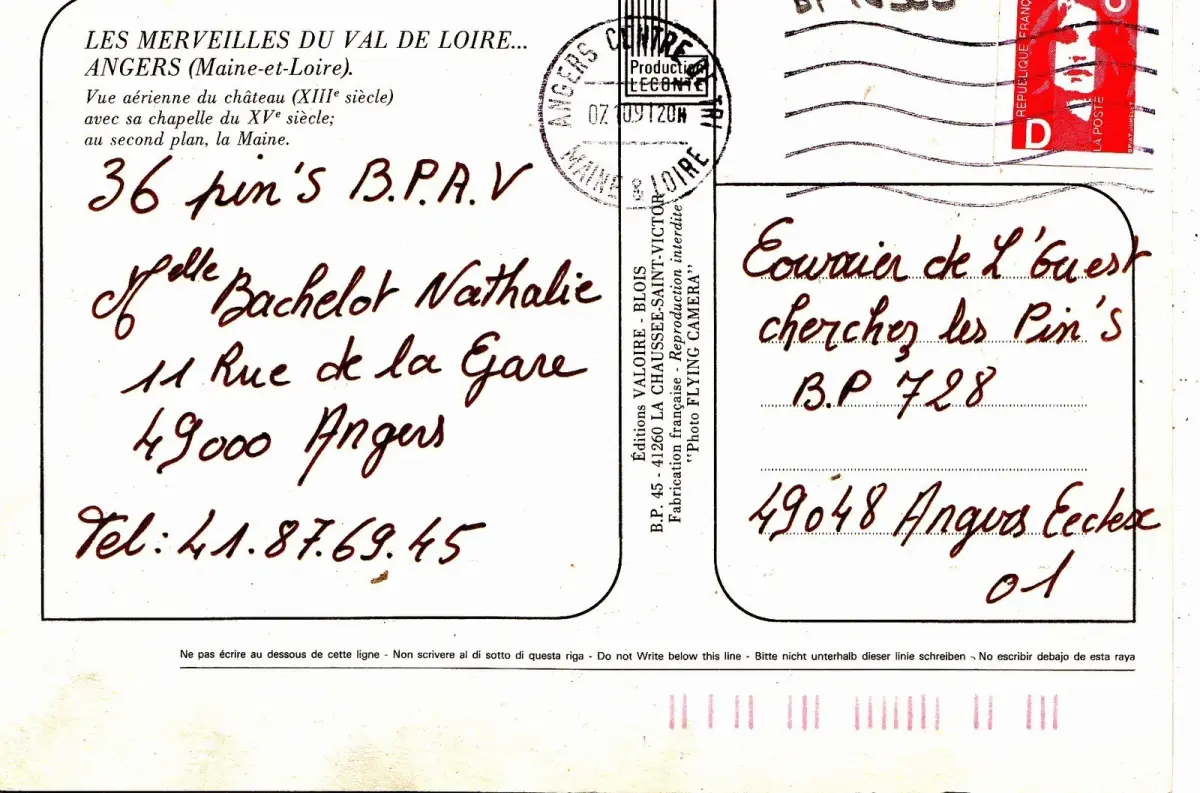 LES MERVEILLES DU VAL DE LOIRE...
ANGERS (Maine-et-Loire).
Vue aérienne du château (XIIIe siècle)
avec sa chapelle du XVe siècle;
au second plan, la Maine.
36 pin's B.P.A.V
Melle Bachelot Nathalie
11 Rue de la Gare
49000 Angers
Tel: 41.87.69.45
ANGERS CENTRE DE TRI
07 10 91 20H
MAINE & LOIRE
Production
LECONTE
Éditions VALOIRE - BLOIS
B.P. 45 - 41260 LA CHAUSSEE-SAINT-VICTOR
Fabrication française - Reproduction interdite
"Photo FLYING CAMERA"
REPUBLIQUE FRANÇ
D
LA POSTE
Courrier de L'Ouest
cherchez les Pin's
B.P 728
49048 Angers Cedex
01
Ne pas écrire au dessous de cette ligne - Non scrivere al di sotto di questa riga - Do not Write below this line - Bitte nicht unterhalb dieser linie schreiben - No escribir debajo de esta raya